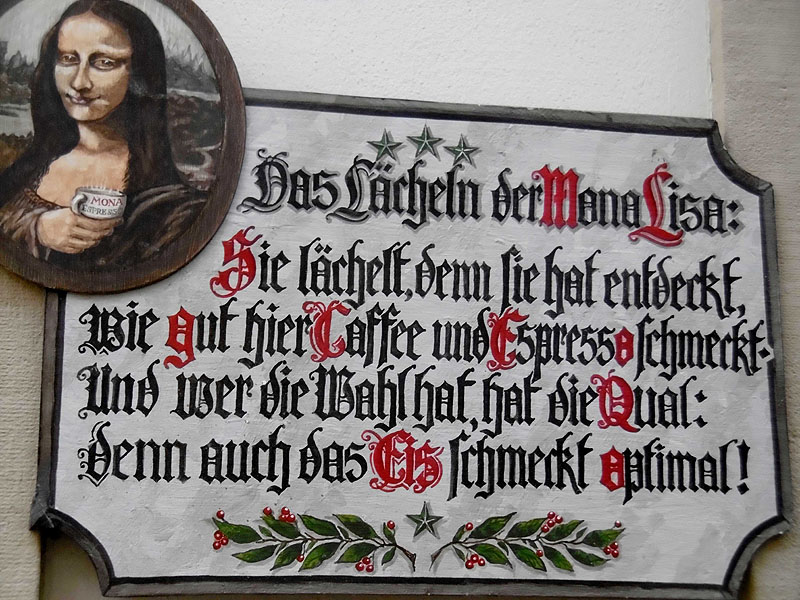 MONA
ESPRESSO
Das Lächeln der Mona Lisa:
Sie lächelt, denn sie hat entdeckt,
Wie gut hier Caffee und Espresso schmeckt.
Und wer die Wahl hat, hat die Qual:
denn auch das Eis schmeckt optimal!